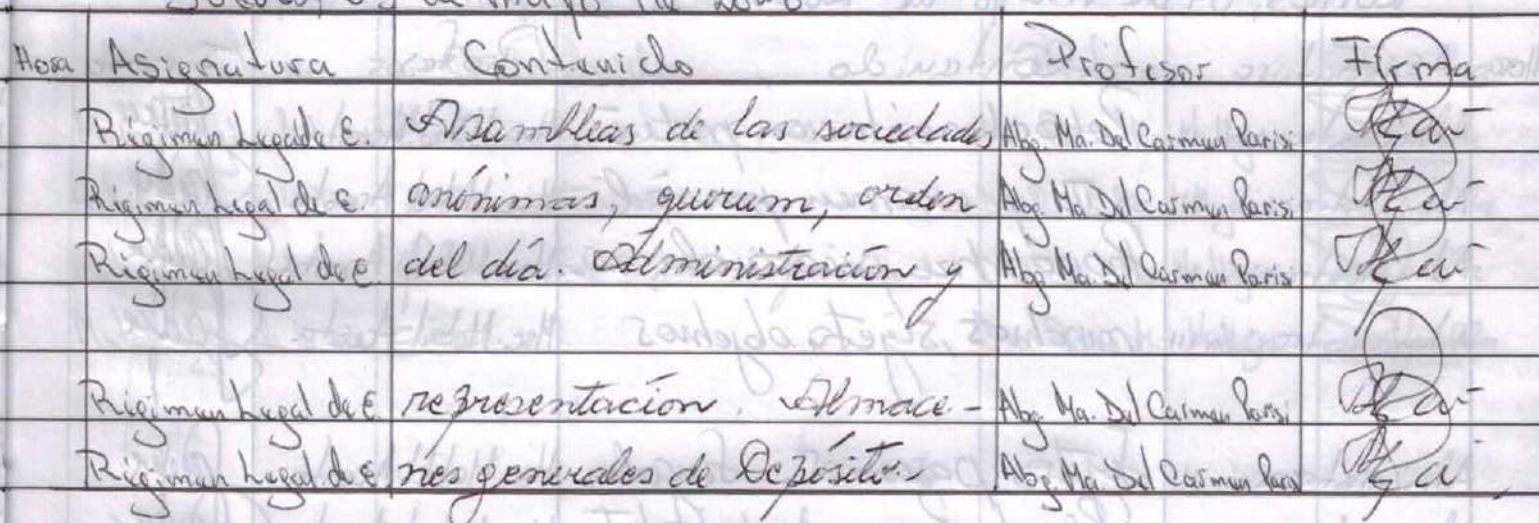 de mayo de
Hora Asignatura Contenido Profesor Firma
Régimen Legal de E. Asambleas de las sociedades Abg. Ma. Del Carmen Parisi
Régimen Legal de E. anónimas, quorum, orden Abg. Ma. Del Carmen Parisi
Régimen Legal de E. del día. Administración y Abg. Ma. Del Carmen Parisi
Régimen Legal de E representación. Almace- Abg. Ma. Del Carmen Parisi
Régimen Legal de E nes generales de Depósito. Abg. Ma. Del Carmen Paris